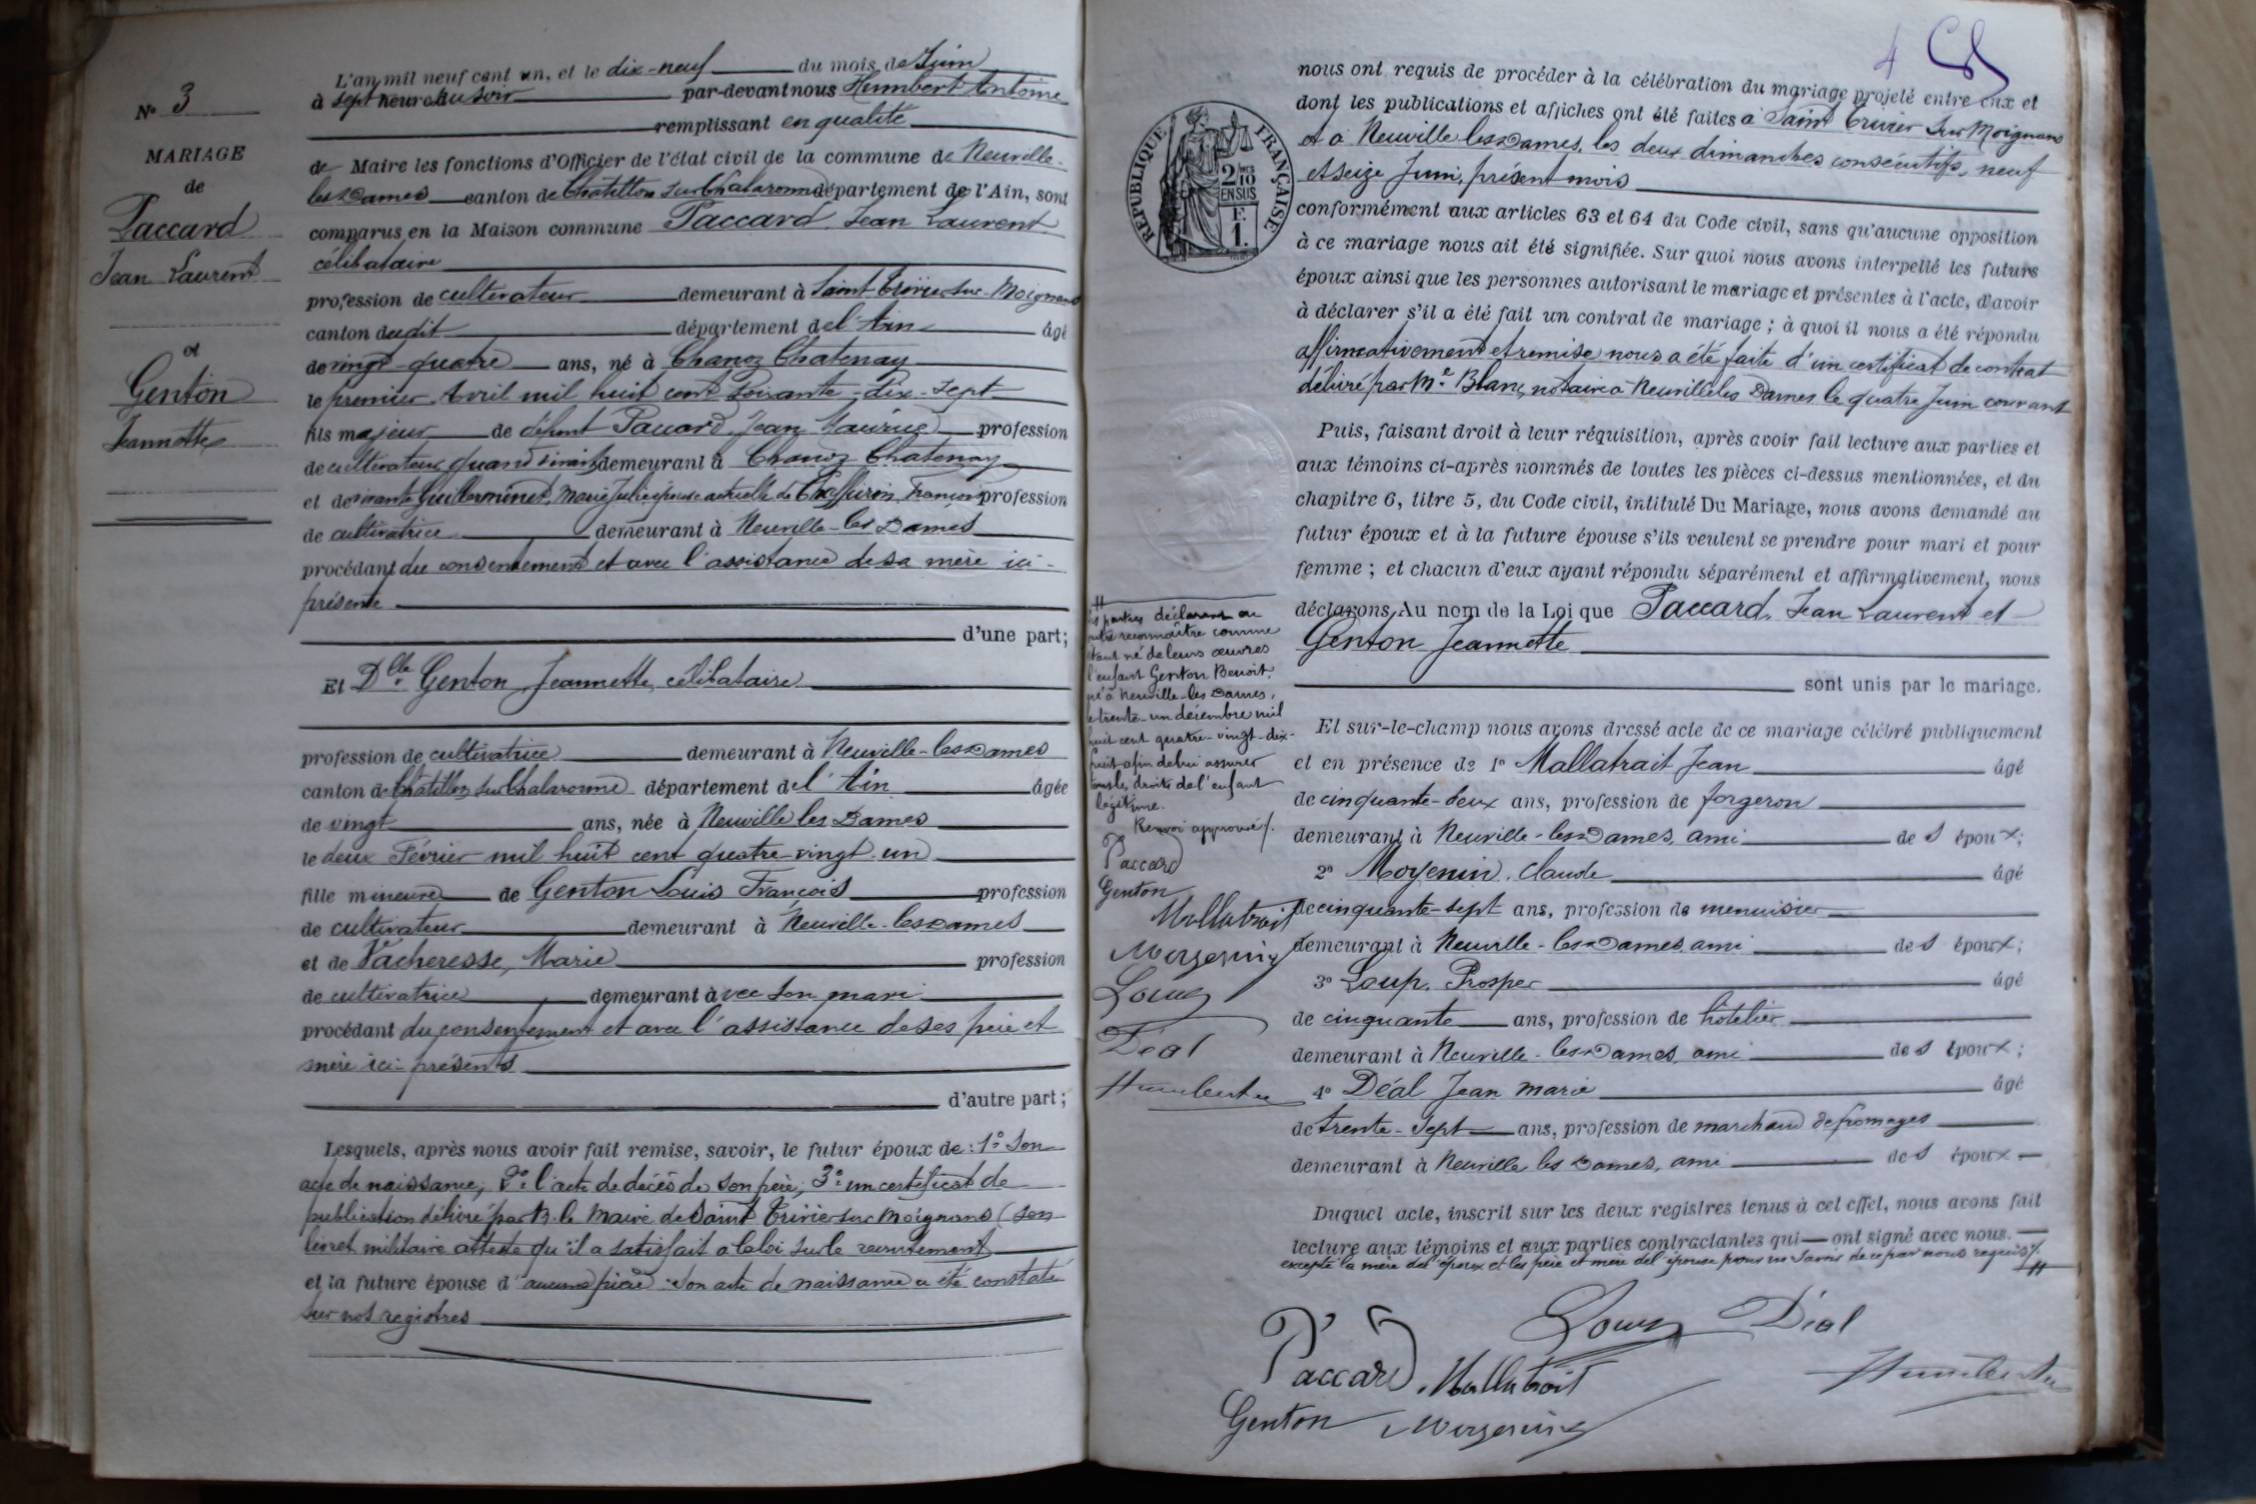 N° 3
MARIAGE
de
Paccard
Jean Laurent
et
Genton
Jeannette
L'an mil neuf cent un, et le dix-neuf du mois de Juin
à sept heures du soir par-devant nous Humbert Antoine
remplissant en qualité
de Maire les fonctions d'Officier de l'état civil de la commune de Neuville-
les Dames canton de Chatillon sur Chalaronne département de l'Ain, sont
comparus en la Maison commune Paccard, Jean Laurent
célibataire
profession de cultivateur demeurant à Saint Trivier sur Moignans
canton dudit département de l'Ain âgé
de vingt-quatre ans, né à Chanoz Chatenay
le premier Avril mil huit cent soixante-dix-sept
fils majeur de défunt Paccard, Jean Maurice profession
de cultivateur quand vivait demeurant à Chanoz Chatenay
et de vivante Guillerminet, Marie Julie épouse actuelle de François profession
de cultivatrice demeurant à Neuville-les Dames
procédant du consentement et avec l'assistance de sa mère ici-
présente
d'une part;
Et Dlle Genton Jeannette, célibataire
profession de cultivatrice demeurant à Neuville-les Dames
canton de Chatillon sur Chalaronne département de l'Ain âgée
de vingt ans, née à Neuville les Dames
le deux Février mil huit cent quatre-vingt-un
fille mineure de Genton Louis François profession
de cultivateur demeurant à Neuville-les Dames
et de Vacheresse, Marie profession
de cultivatrice demeurant avec son mari
procédant du consentement et avec l'assistance de ses père et
mère ici-présents
d'autre part;
Lesquels, après nous avoir fait remise, savoir, le futur époux de: 1° son
acte de naissance; 2° l'acte de décès de son père; 3° un certificat de
publication délivré par M. le Maire de Saint Trivier sur Moignans (son
livret militaire atteste qu'il a satisfait à la loi sur le recrutement)
et la future épouse d'aucune pièce. Son acte de naissance a été constaté
sur nos registres
4
RÉPUBLIQUE FRANÇAISE
2 10
EN SUS
F.
1.
nous ont requis de procéder à la célébration du mariage projeté entre eux et
dont les publications et affiches ont été faites à Saint Trivier sur Moignans
et à Neuville les Dames, les deux dimanches consécutifs, neuf
et seize Juin, présent mois
conformément aux articles 63 et 64 du Code civil, sans qu'aucune opposition
à ce mariage nous ait été signifiée. Sur quoi nous avons interpellé les futurs
époux ainsi que les personnes autorisant le mariage et présentes à l'acte, d'avoir
à déclarer s'il a été fait un contrat de mariage; à quoi il nous a été répondu
affirmativement et remise nous a été faite d'un certificat de contrat
délivré par Me Blanc, notaire à Neuville les Dames le quatre Juin courant
Puis, faisant droit à leur réquisition, après avoir fait lecture aux parties et
aux témoins ci-après nommés de toutes les pièces ci-dessus mentionnées, et du
chapitre 6, titre 5, du Code civil, intitulé Du Mariage, nous avons demandé au
futur époux et à la future épouse s'ils veulent se prendre pour mari et pour
femme; et chacun d'eux ayant répondu séparément et affirmativement, nous
déclarons, Au nom de la Loi que Paccard, Jean Laurent et
Genton Jeannette
sont unis par le mariage.
Et sur-le-champ nous avons dressé acte de ce mariage célébré publiquement
et en présence de 1° Mallatrait Jean âgé
de cinquante-deux ans, profession de forgeron
demeurant à Neuville-les Dames, ami des époux;
2° Moyenin, Claude âgé
de cinquante-sept ans, profession de menuisier
demeurant à Neuville-les Dames ami des époux;
3° Loup, Prosper âgé
de cinquante ans, profession de hôtelier
demeurant à Neuville-les Dames, ami des époux;
4° Déal Jean Marie âgé
de trente-sept ans, profession de marchand de fromages
demeurant à Neuville les Dames, ami des époux
Duquel acte, inscrit sur les deux registres tenus à cet effet, nous avons fait
lecture aux témoins et aux parties contractantes qui ont signé avec nous.
excepté la mère de l'époux et les père et mère de l'épouse pour ne savoir de ce par nous requis
Loup Déal
Paccard J Mallatrait Humbert
Genton
les parties déclarent en
outre reconnaître comme
étant né de leurs œuvres
l'enfant Genton Benoit,
né à Neuville-les Dames,
le trente-un décembre mil
huit cent quatre-vingt-dix-
huit afin de lui assurer
tous les droits de l'enfant
légitime.
Renvoi approuvé
Paccard
Genton
Mallatrait
Loup
Déal
Humbert